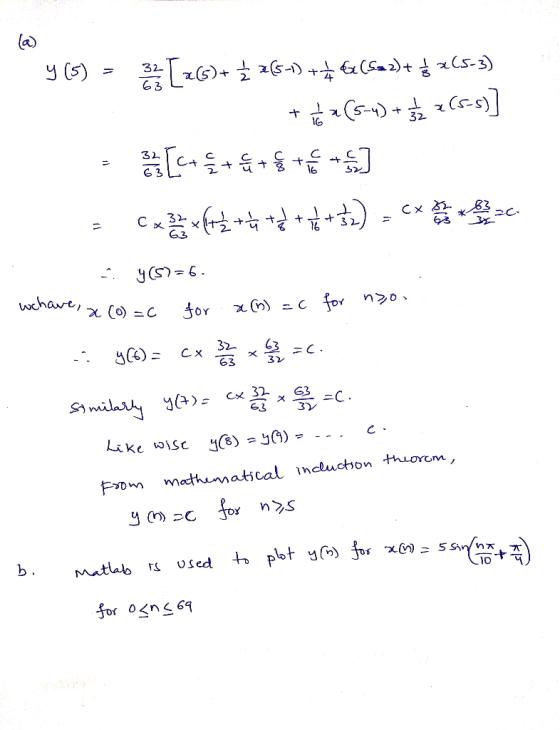 (a)
y(5) = 32/63 [x(5) + 1/2 x(5-1) + 1/4 x(5-2) + 1/8 x(5-3)
+ 1/16 x(5-4) + 1/32 x(5-5)]
= 32/63 [C + C/2 + C/4 + C/8 + C/16 + C/32]
= C × 32/63 × (1 + 1/2 + 1/4 + 1/8 + 1/16 + 1/32) = C × 32/63 × 63/32 = C.
∴ y(5) = 6.
wehave, x(0) = C for x(n) = C for n ≥ 0.
∴ y(6) = C × 32/63 × 63/32 = C.
Similarly y(7) = C × 32/63 × 63/32 = C.
Like wise y(8) = y(9) = --- C.
From mathematical induction theorem,
y(n) = C for n ≥ 5
b. Matlab is used to plot y(n) for x(n) = 5 sin(nπ/10 + π/4)
for 0 ≤ n ≤ 69